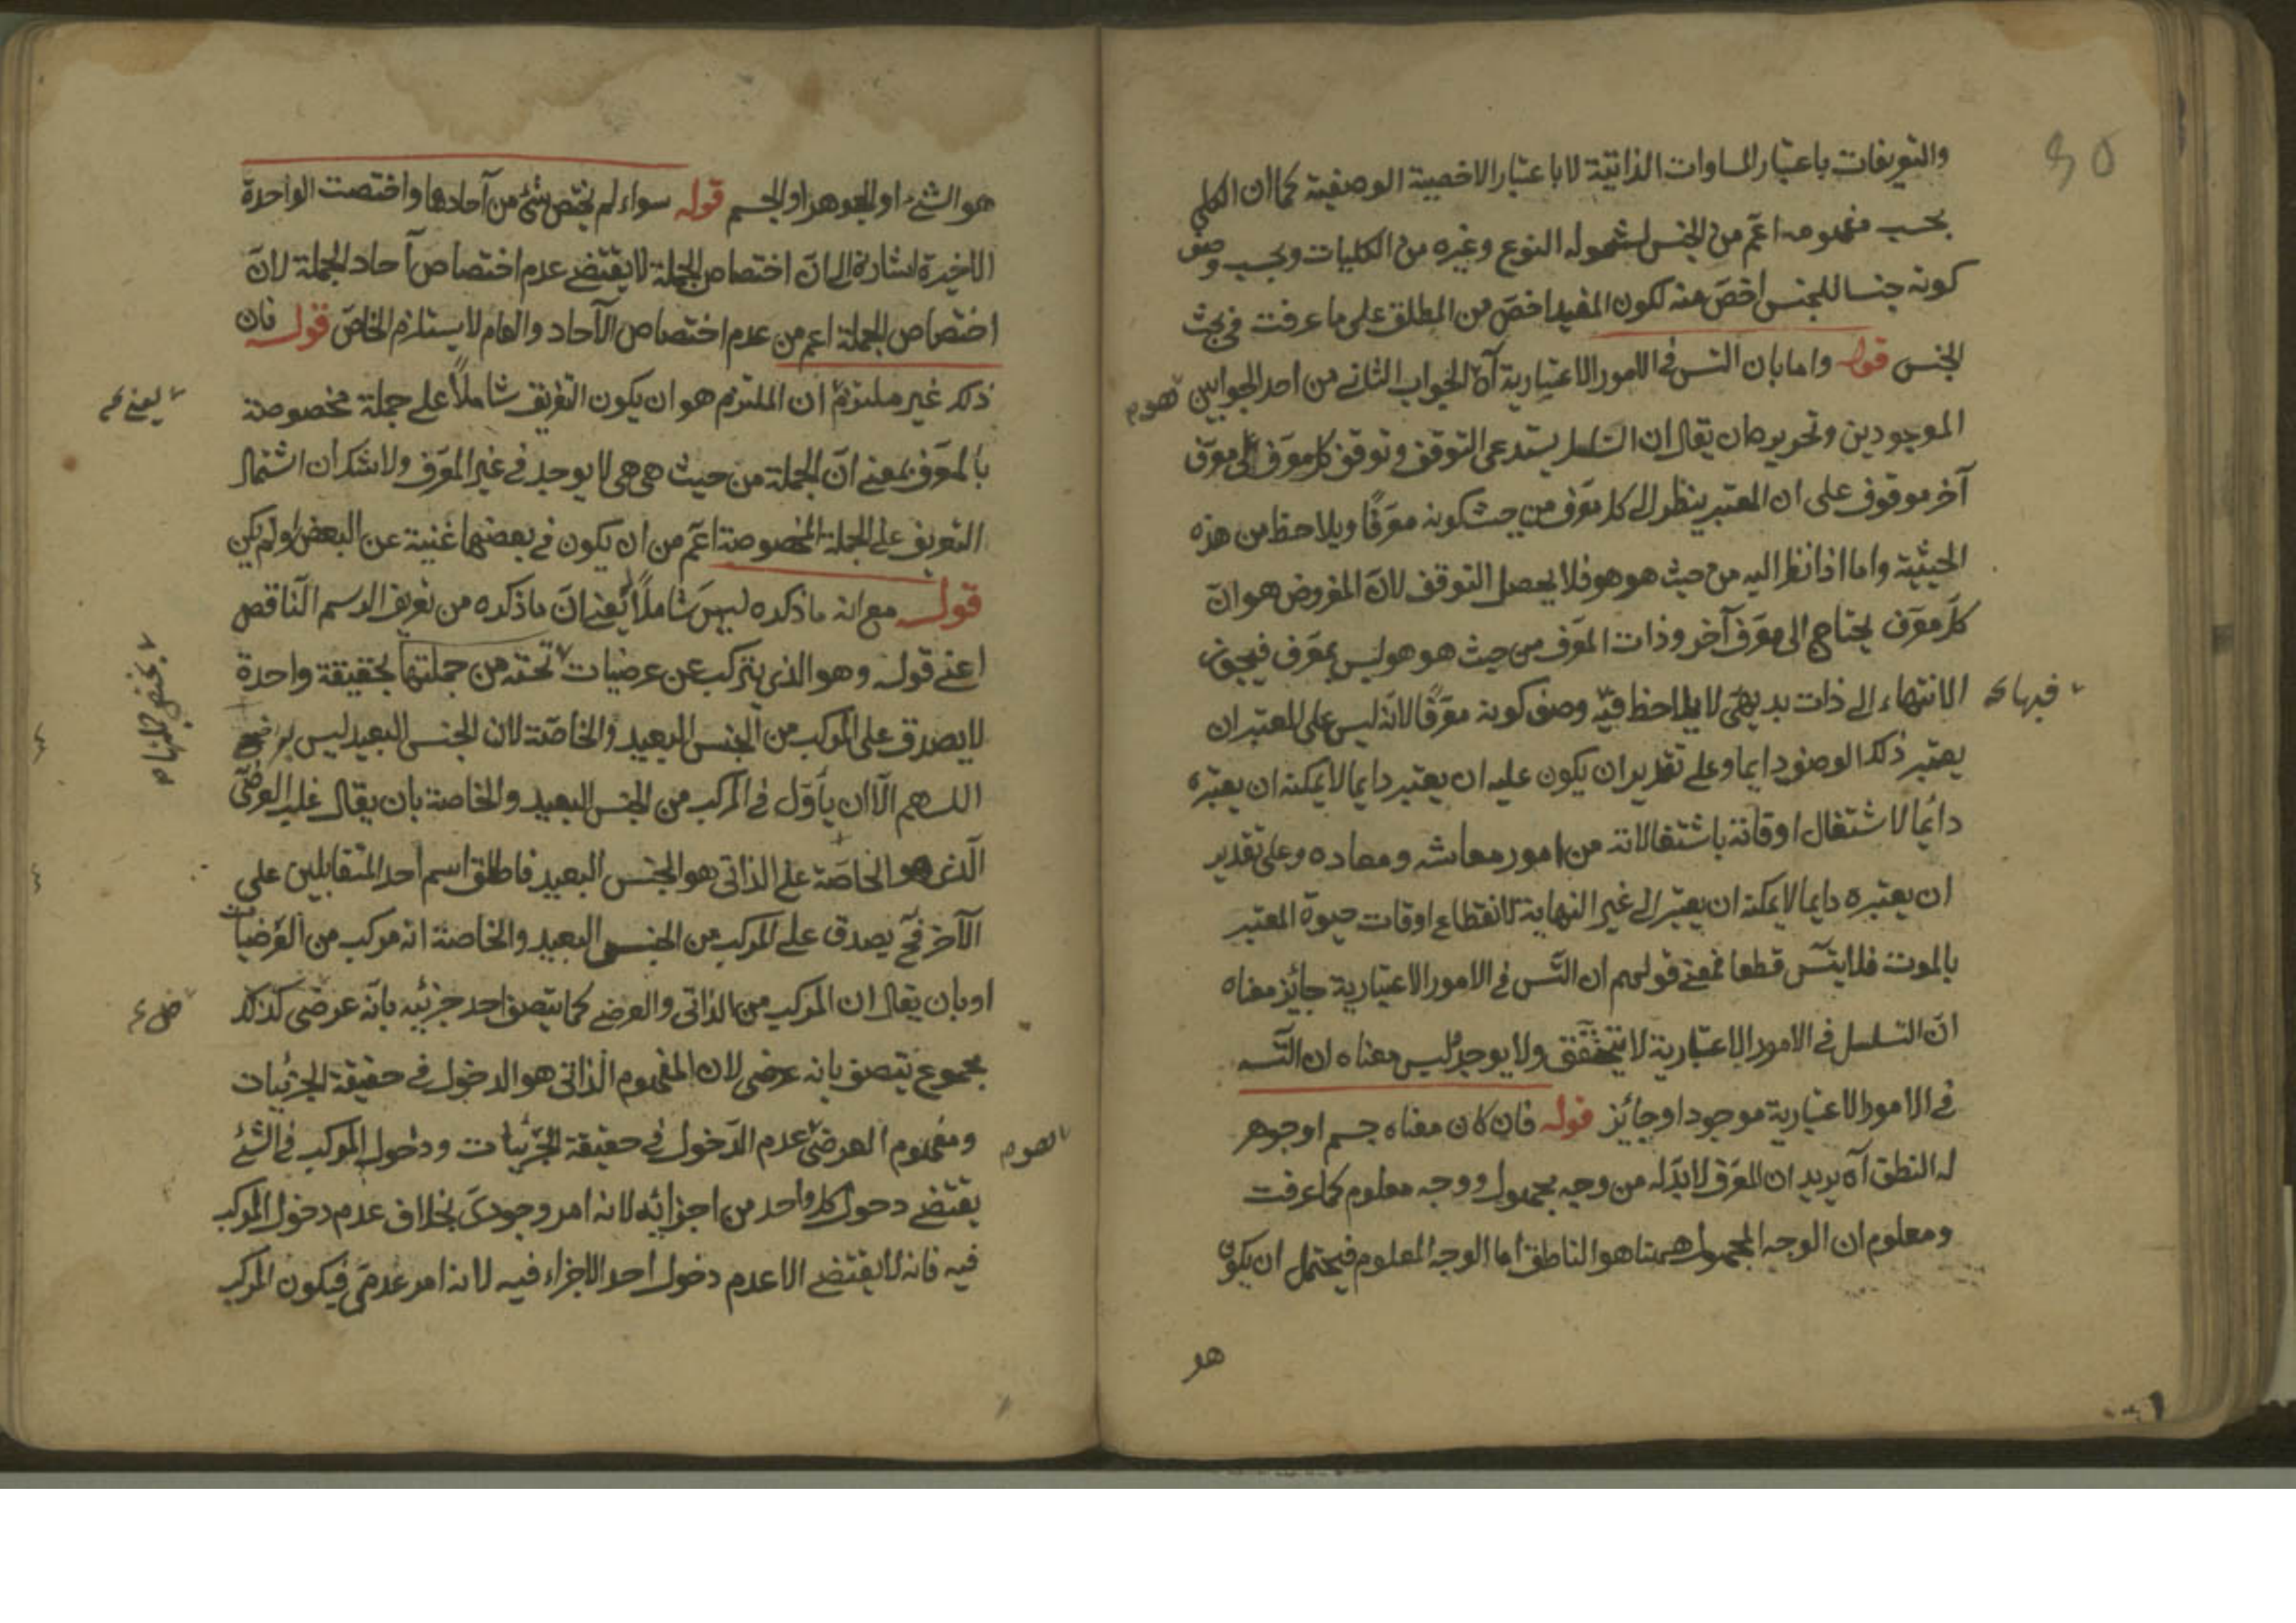 والتعريفات باعتبار المساوات الذاتية لا باعتبار الاخصية الوصفية كما ان الكلي
بحسب مفهومه اعم من الجنس لشموله النوع وغيره من الكليات وبحسب وصف
كونه جنسا للجنس اخص منه لكون المقيد اخص من المطلق على ما عرفت في بحث
الجنس قوله واما بان التس في الامور الاعتبارية آه الجواب الثاني من احد الجوابين
هوم
الموجودين وتحريره ان يقال ان التسلسل يستدعى التوقف وتوقف كل معرف الى معرف
آخر موقوف على ان المعتبر ينظر الى كل معرف من حيث كونه معرفا ويلاحظ من هذه
الحيثية واما اذا نظر اليه من حيث هو هو فلا يحصل التوقف لان المفروض هو ان
كل معرف يحتاج الى معرف آخر وذات المعرف من حيث هو هو ليس بمعرف فيجوز
الانتهاء الى ذات بديهى لا يلاحظ فيه وصف كونه معرفا لانه ليس على المعتبر ان
فيها
يعتبر ذلك الوصف دايما وعلى تقدير ان يكون عليه ان يعتبر دايما لا يمكنه ان يعتبره
دائما لاشتغال اوقاته باشتغالاته من امور معاشه ومعاده وعلى تقدير
ان يعتبره دايما لا يمكنه ان يعتبر الى غير النهاية لانقطاع اوقات حيوة المعتبر
بالموت فلا يتس قطعا فمعنى قولهم ان التس في الامور الاعتبارية جائز معناه
ان التسلسل في الامور الاعتبارية لا يتحقق ولا يوجد ليس معناه ان التسـ
في الامور الاعتبارية موجود او جائز قوله فان كان معناه جسم او جوهر
له النطق آه يريد ان المعرف لا بد له من وجه مجهول ووجه معلوم كما عرفت
ومعلوم ان الوجه المجهول ههنا هو الناطق اما الوجه المعلوم فيحتمل ان يكون
هو
هو الشئ او الجوهر او الجسم قوله سواء لم يختص شئ من آحادها واختصت الواحدة
الاخيرة اشارة الى ان اختصاص الجملة لا يقتضى عدم اختصاص آحاد الجملة لان
اختصاص الجملة اعم من عدم اختصاص الآحاد والعام لا يستلزم الخاص قوله فان
ذلك غير ملتزم ان الملتزم هو ان يكون التعريف شاملا على جملة مخصوصة
يعني
بالمعرف بمعنى ان الجملة من حيث هي هي لا يوجد في غير المعرف ولا شك ان اشتمال
التعريف على الجملة المخصوصة اعم من ان يكون في بعضها غنية عن البعض او لم يكن
قوله مع انه ما ذكره ليس شاملا يعنى ان ما ذكره من تعريف الرسم الناقص
اعنى قوله وهو الذي يتركب عن عرضيات تختص من جملتها بحقيقة واحدة
لا يصدق على المركب من الجنس البعيد والخاصة لان الجنس البعيد ليس
اللهم الا ان يأول في المركب من الجنس البعيد والخاصة بان يقال غلب العرضى
الذى هو الخاصة على الذاتى هو الجنس البعيد فاطلق اسم احد المتقابلين على
الآخر فح يصدق على المركب من الجنس البعيد والخاصة انه مركب من العرضيات
او بان يقال ان المركب من الذاتى والعرضى كما يتصف احد جزئيه بانه عرضى كذلك
مجموع يتصف بانه عرضى لان المفهوم الذاتى هو الدخول في حقيقة الجزئيات
ومفهوم العرضى عدم الدخول في حقيقة الجزئيات ودخول المركب في الشئ
يقتضى دخول كل واحد من اجزائه لانه امر وجودى بخلاف عدم دخول المركب
فيه فانه لا يقتضى الا عدم دخول احد الاجزاء فيه لانه امر عدمى فيكون المركب